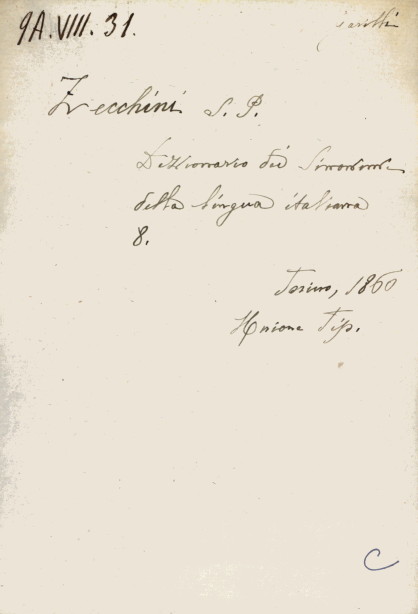 9A.VIII.31.
Zecchini S. P.
Dizzionario dei Sinonimi
della lingua italiana
8.
Torino, 1860
Unione Tip.
C